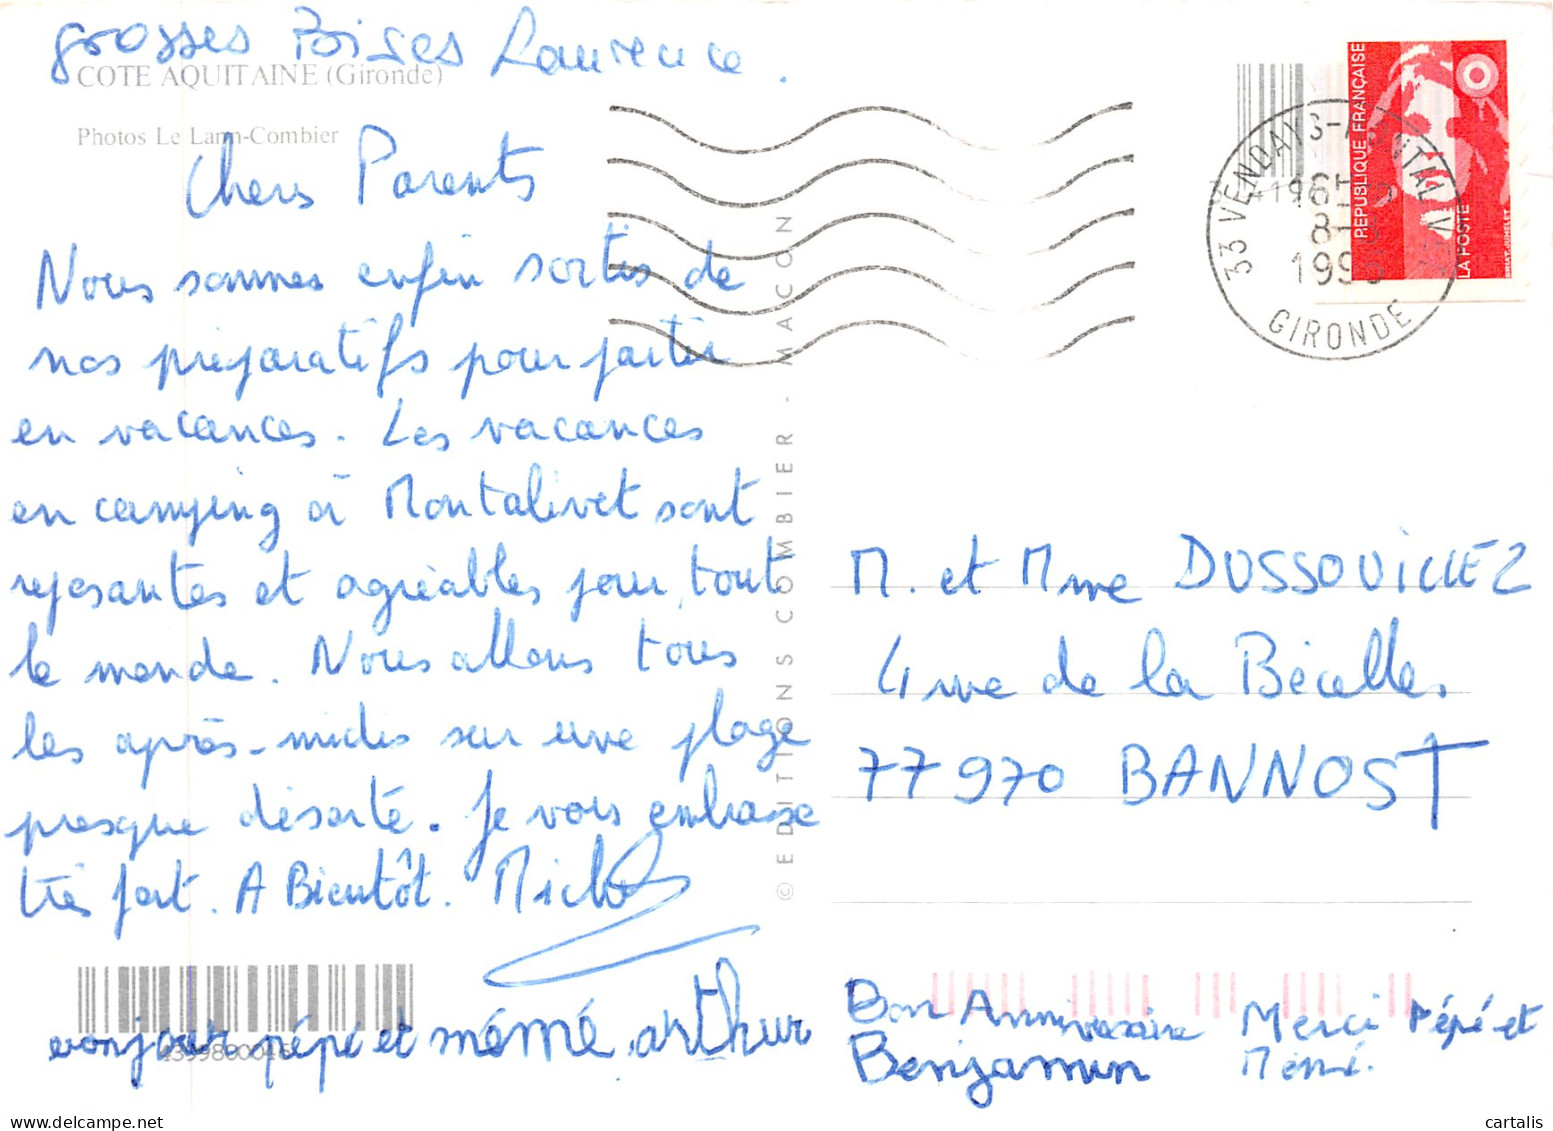 grosses Bises Laurence.
COTE AQUITAINE (Gironde)
Photos Le Lann-Combier
Chers Parents
Nous sommes enfin sortis de
nos préparatifs pour partir
en vacances. Les vacances
en camping à Montalivet sont
reposantes et agréables pour tout
le monde. Nous allons tous
les après-midis sur une plage
presque déserte. Je vous embrasse
très fort. A Bientôt.
bonjour pépé et mémé arthur
© EDITIONS COMBIER - MACON
RÉPUBLIQUE FRANÇAISE
LA POSTE
33 VENDAYS-MONTALIV
GIRONDE
M. et Mme DUSSOUILLEZ
4 rue de la Bécelle
77970 BANNOST
Bon Anniversaire Merci Pépé et
Benjamin Mémé.
cartalis
delcampe.net